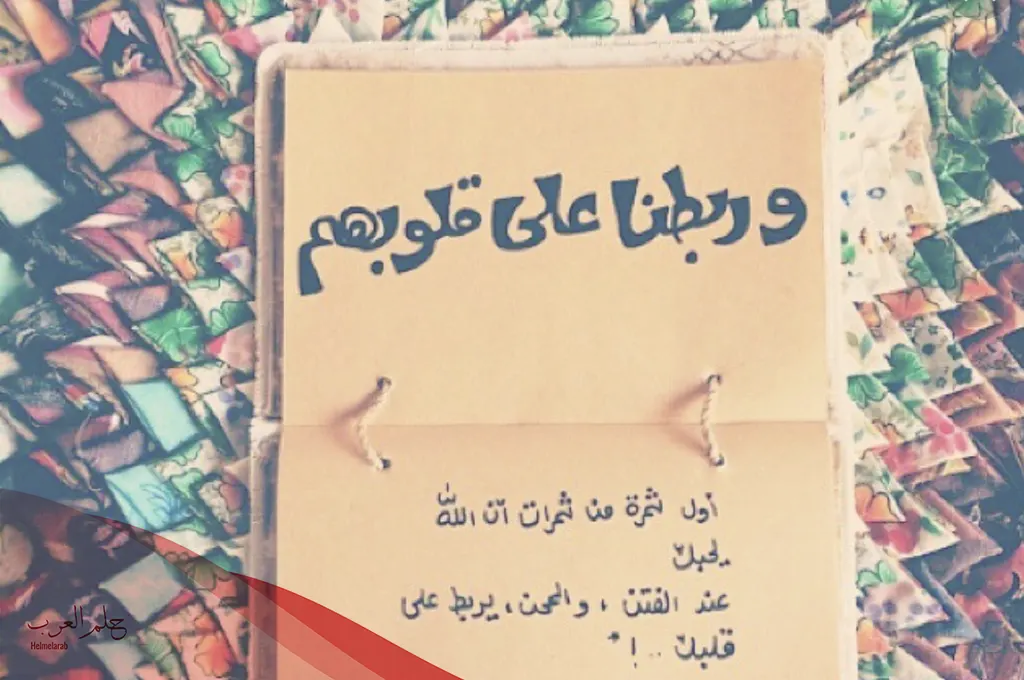 وربطنا على قلوبهم
أول ثمرة من ثمرات أن اللّٰه
يحبك
عند الفتن ، والمحن ، يربط على
قلبك .. ! *
حلم العرب
Helmelarab